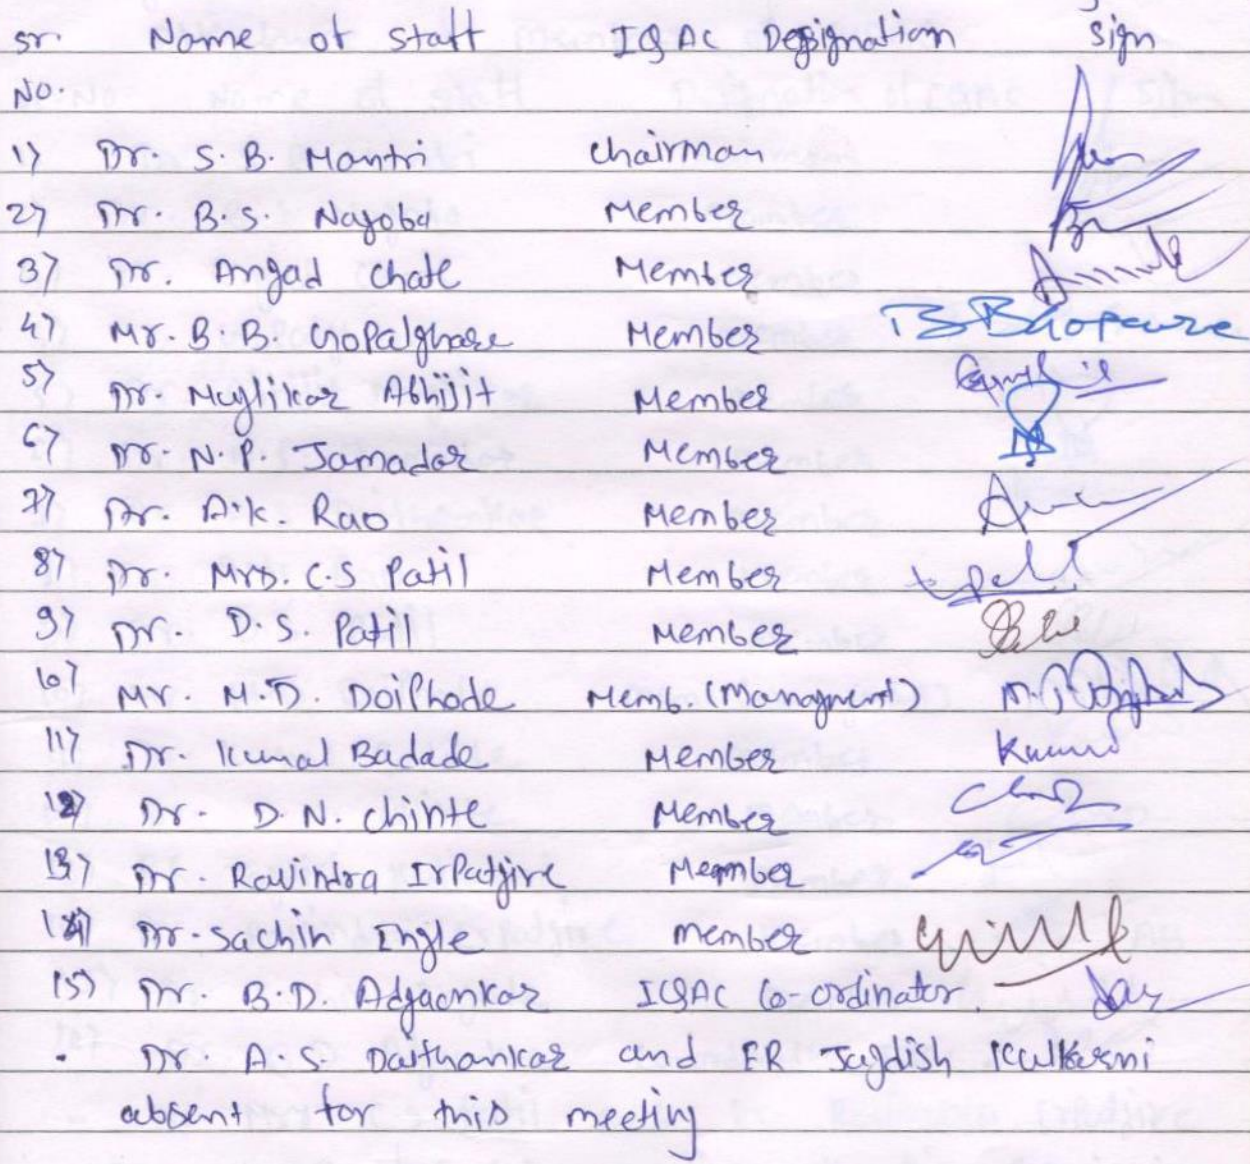 sr. Name of staff IQAC Designation Sign
NO.
1) Dr. S. B. Mantri Chairman
2) Dr. B.S. Nagoba Member
3) Dr. Angad Chate Member
4) Mr. B. B. Gopalghare Member
5) Dr. Muglikar Abhijit Member
6) Dr. N.P. Jamadar Member
7) Dr. A.K. Rao Member
8) Dr. Mrs. C.S Patil Member
9) Dr. D.S. Patil Member
10) Mr. M.D. Doiphode Memb. (Managment)
11) Dr. Kunal Badade Member
12) Dr. D. N. Chinte Member
13) Dr. Ravindra Irpatgire Member
14) Dr. Sachin Ingle member
15) Dr. B.D. Adgaonkar IQAC Co-ordinator.
. Dr. A.S. Daithankar and ER Jagdish Kulkarni
absent for this meeting